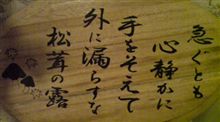 急ぐとも
心静かに
手をそえて
外に漏らすな
松茸の露